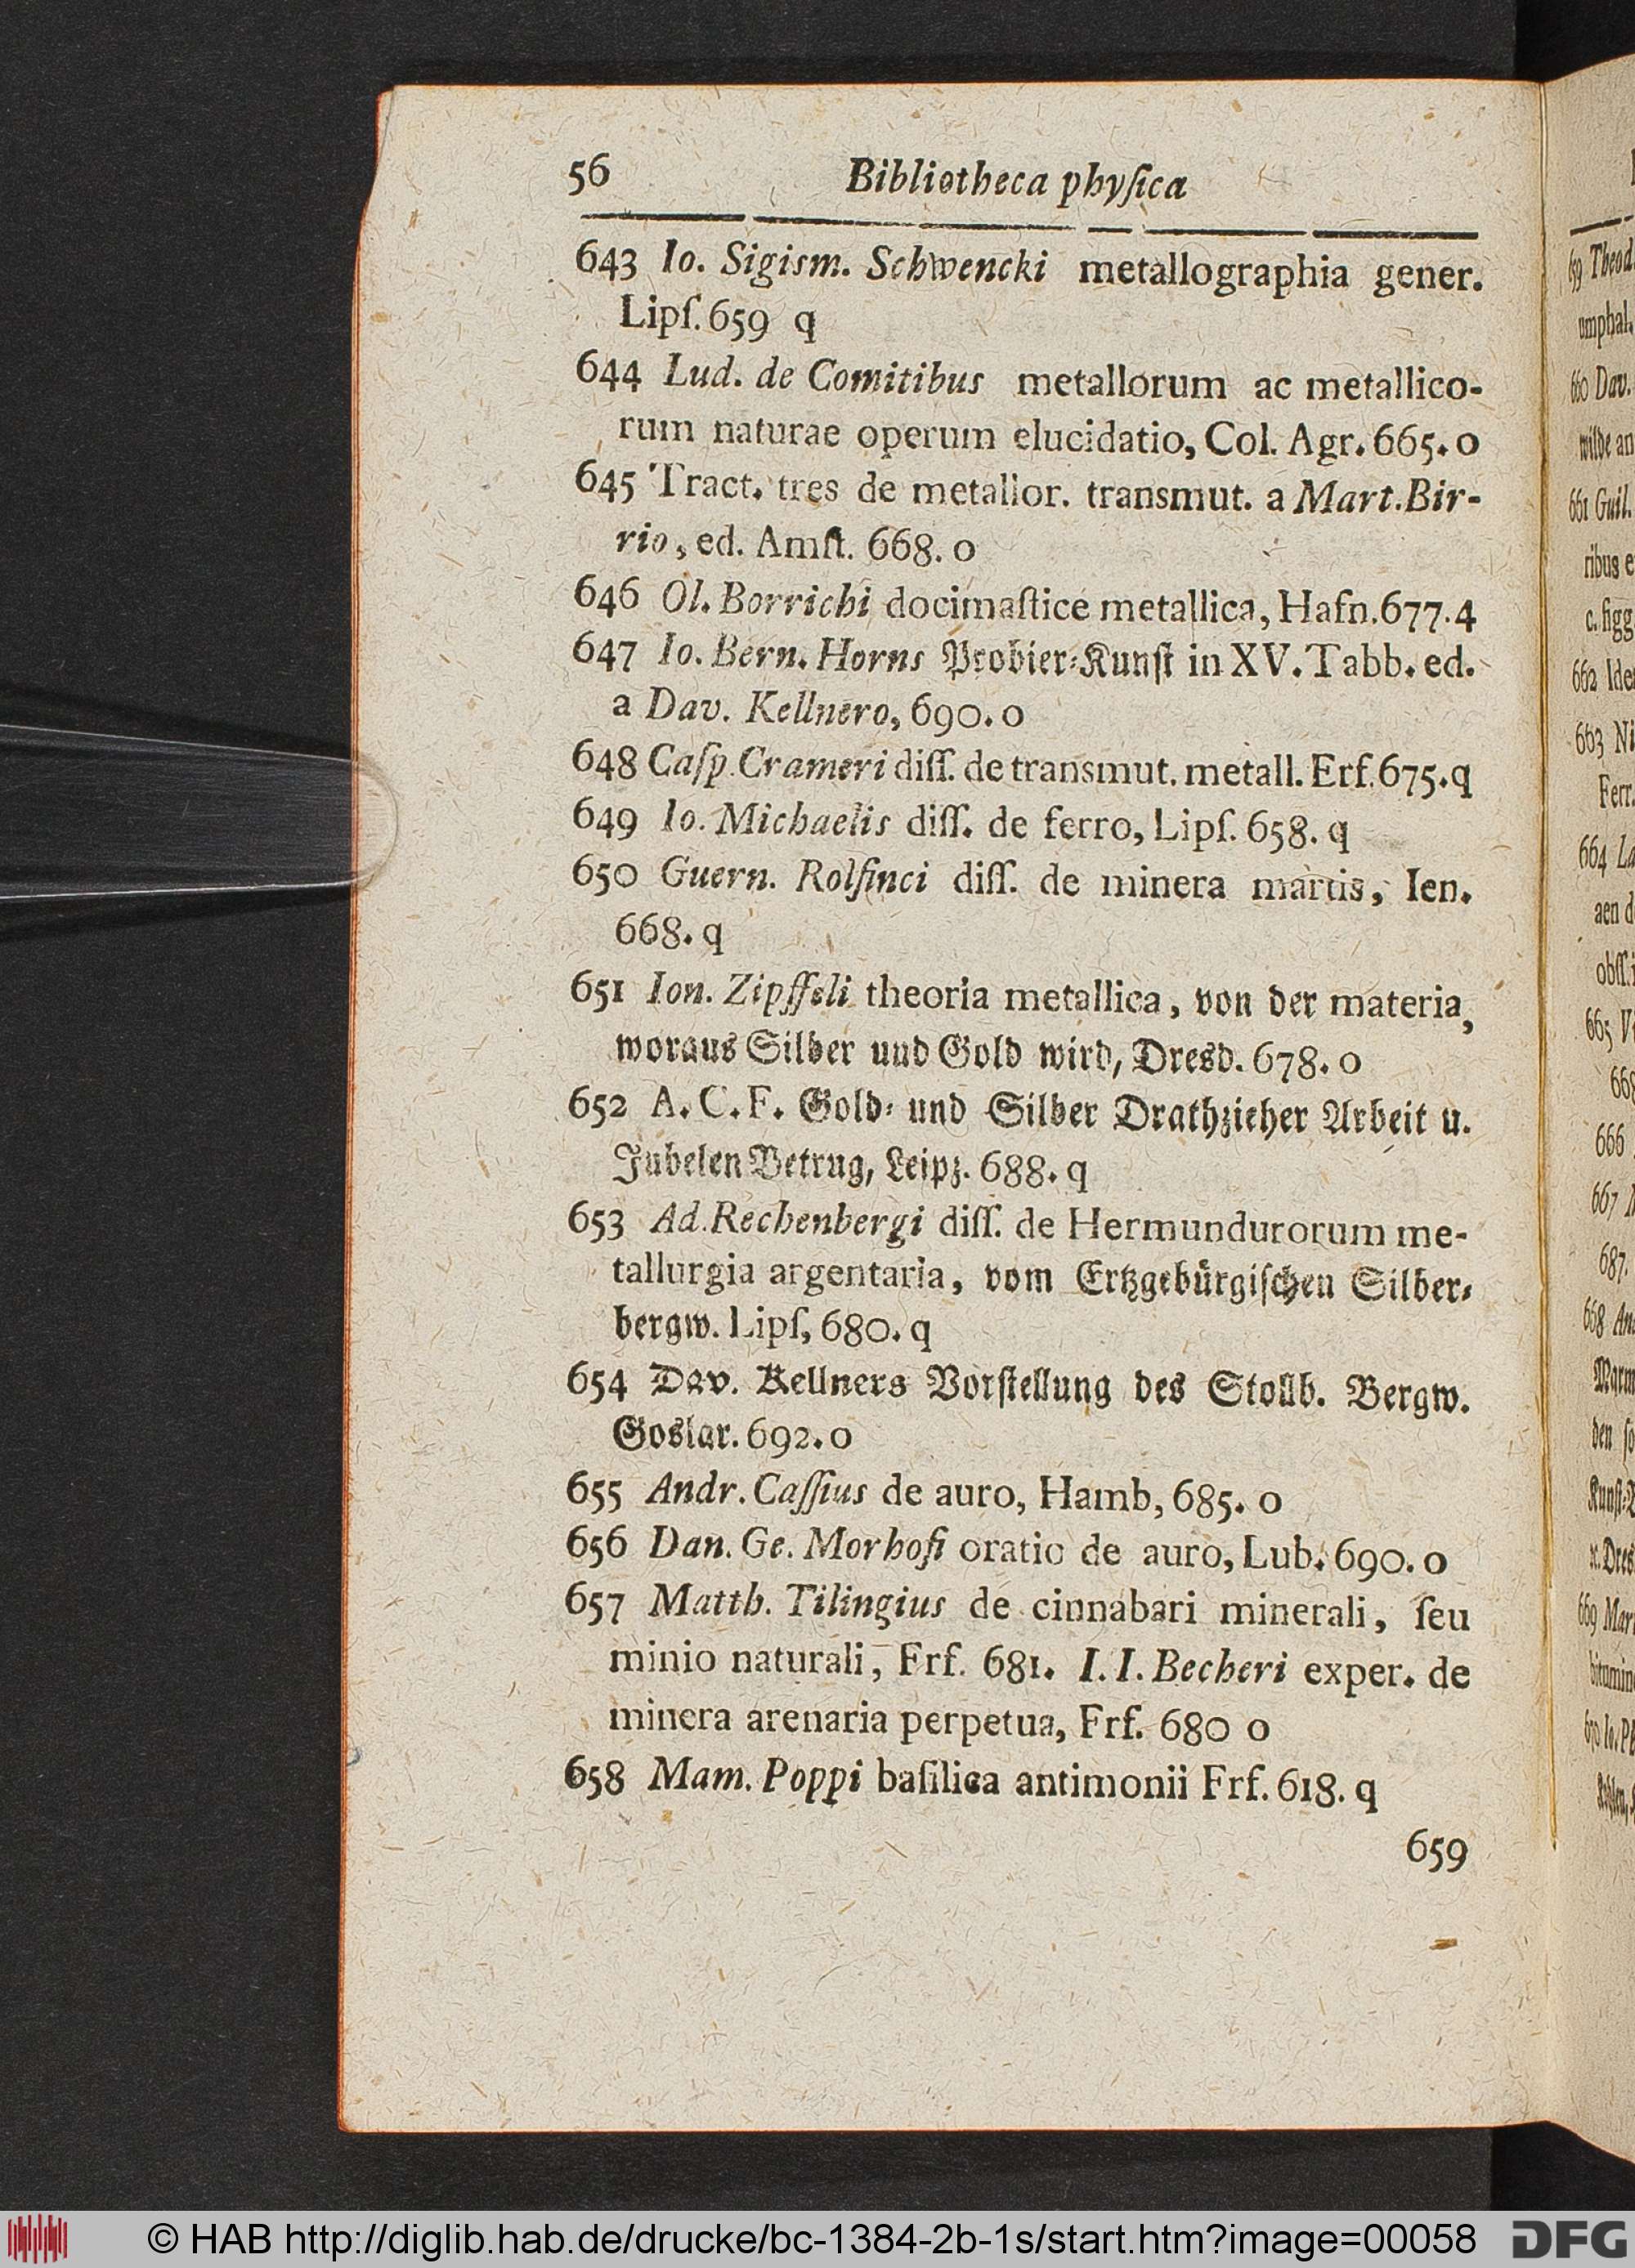 56 Bibliotheca phyſica
643 Io. Sigism. Schwencki metallographia gener.
Lipſ. 659 q
644 Lud. de Comitibus metallorum ac metallico-
rum naturae operum elucidatio, Col. Agr. 665. o
645 Tract. tres de metallor. transmut. a Mart. Bir-
rio, ed. Amſt. 668. o
646 Ol. Borrichi docimaſtice metallica, Hafn. 677. 4
647 Io. Bern. Horns Probier-Kunſt in XV. Tabb. ed.
a Dav. Kellnero, 690. o
648 Caſp. Crameri diſſ. de transmut. metall. Erf. 675. q
649 Io. Michaelis diſſ. de ferro, Lipſ. 658. q
650 Guern. Rolfinci diſſ. de minera martis, Ien.
668. q
651 Ion. Zipffeli theoria metallica, von der materia,
woraus Silber uud Gold wird, Dresd. 678. o
652 A. C. F. Gold- und Silber Drathzieher Arbeit u.
Jubelen Betrug, Leipz. 688. q
653 Ad. Rechenbergi diſſ. de Hermundurorum me-
tallurgia argentaria, vom Ertzgebürgiſchen Silber-
bergw. Lipſ, 680. q
654 Dav. Kellners Vorſtellung des Stollb. Bergw.
Goslar. 692. o
655 Andr. Caſſius de auro, Hamb, 685. o
656 Dan. Ge. Morhofi oratio de auro, Lub. 690. o
657 Matth. Tilingius de cinnabari minerali, ſeu
minio naturali, Frf. 681. I. I. Becheri exper. de
minera arenaria perpetua, Frf. 680 o
658 Mam. Poppi baſilica antimonii Frf. 618. q
659
659 Theod.
umphal.
660 Dav.
wilde an
661 Guil.
ribus e
c. figg
662 Ide
663 Ni
Ferr.
664 La
aen d
obſſ. i
665 Vi
668
666
667
687.
668 An
Marm
den ſo
Kunſt-
Dres
669 Mar
bitumin
670 Io. P
© HAB http://diglib.hab.de/drucke/bc-1384-2b-1s/start.htm?image=00058 DFG